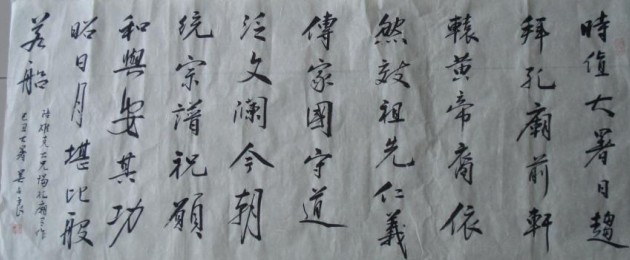 時值大暑日趨
拜孔廟前軒
轅黄帝裔依
然效祖先仁義
傳家國守道
泛文瀾今朝
統宗譜祝願
和與安其功
昭日月堪比般
若船
己丑大暑